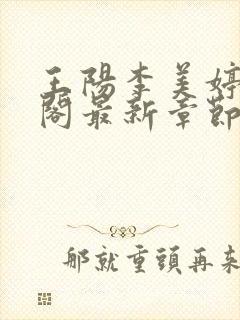 王陽李美婷
閣最新章節
那就重頭再來